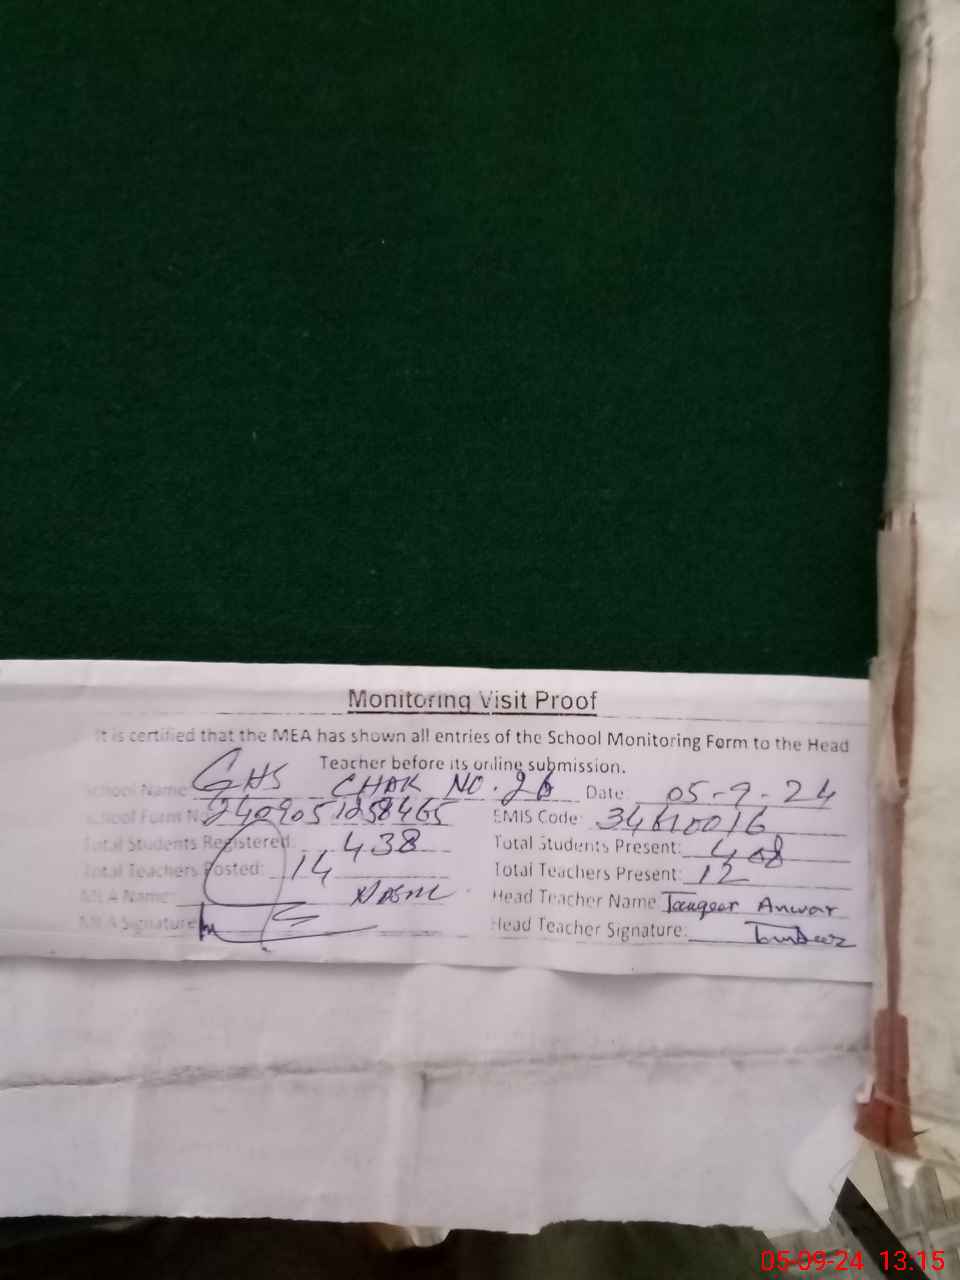 Monitoring Visit Proof
It is certified that the MEA has shown all entries of the School Monitoring Form to the Head
Teacher before its online submission.
School Name: GHS CHAK NO. 26 Date: 05-9-24
School Form No 2409051058465 EMIS Code: 34610016
Total Students Registered: 438 Total Students Present: 408
Total Teachers Posted: 14 Total Teachers Present: 12
MEA Name: Head Teacher Name: Tauqeer Anwar
MEA Signature Head Teacher Signature:
05-09-24 13:15